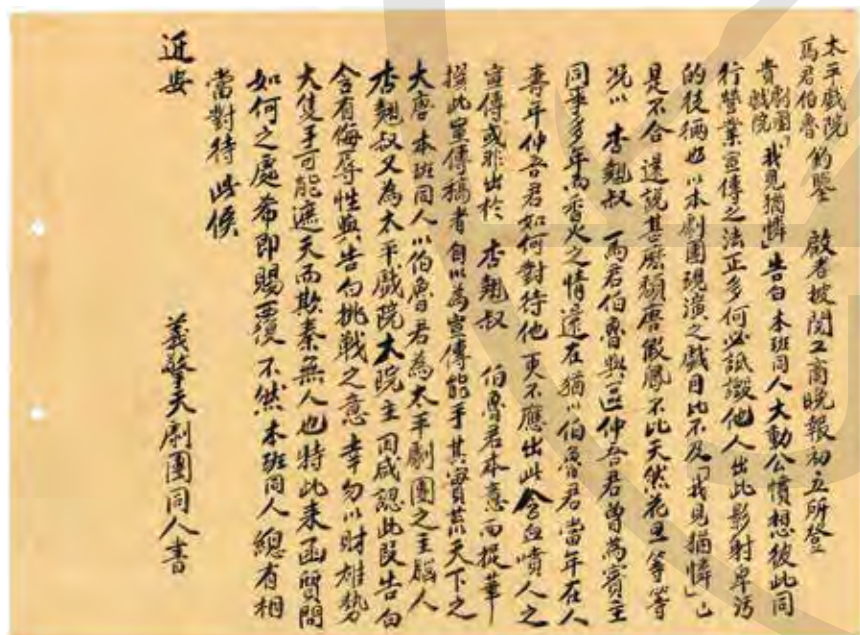 太平戲院
馬君伯魯 鈞鑒 啟者披閱工商晚報初五所登
貴劇團戲院「我見猶憐」告白 本班同人大動公憤想彼此同
行營業宣傳之法正多何必詆譭他人出此影射卑污
的伎倆如以本劇團現演之戲目比不及「我見猶憐」已
是不合 還說甚麼頹唐假鳳不比天然花旦 等等
况以 李翹叔 馬君伯魯與區仲吾君曾為賓主
同事多年而香火之情還在猶以伯魯君當年在人
壽年仲吾君如何對待他 更不應出此含血噴人之
宣傳或非出於 李翹叔 伯魯君本意而提筆
撰此宣傳稿者自以為宣傳能手其實荒天下之
大唐 本班同人以伯魯君為太平劇團之主腦人
李翹叔又為太平戲院大院主 同感認此段告白
含有侮辱性與告白挑戰之意 幸勿以財雄勢
大隻手可能遮天而欺秦無人也特此來函質問
如何之處希即賜覆 不然 本班同人總有相
當對待 此候
近安
義擎天劇團同人書